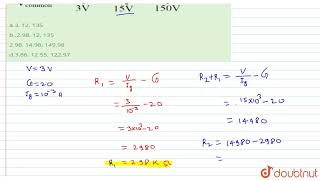 common 3V 15V 150V
a.3, 12, 135
b.2.98, 12, 135
2.98, 14.98, 149.98
d.3.86, 12.55, 122.97
V = 3V
G = 20
Ig = 10⁻³ A
R₁ = V/Ig - G
= 3/10⁻³ - 20
= 3×10³ - 20
= 2980
R₁ = 2.98 K Ω
R₂+R₁ = V/Ig - G
= 15×10³ - 20
= 14980
R₂ = 14980 - 2980
=
doubtnut